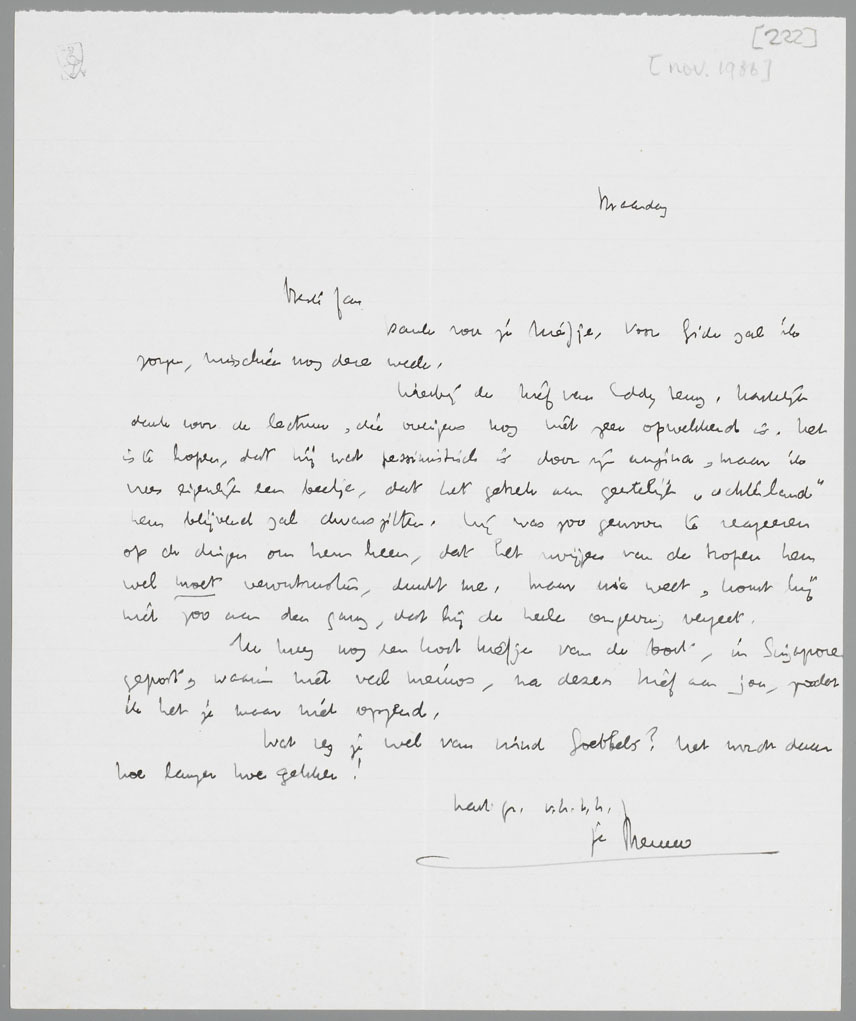 [222]
[nov. 1936]
Maandag
Beste Jan
dank voor je briefje. Voor Gide zal ik
zorgen, misschien nog deze week.
Hierbij de brief van Eddy terug. Hartelijk
dank voor de lectuur, die overigens nog niet zeer opwekkend is. Het
is te hopen, dat hij wat pessimistisch is door zijn angina, maar ik
vrees eigenlijk een beetje, dat het gebrek aan geestelijk „achterland”
hem blijvend zal dwarszitten. Hij was zoo gewoon te reageeren
op de dingen om hem heen, dat het zwijgen van de tropen hem
wel moet verontrusten, dunkt me. Maar wie weet, komt hij
niet zoo aan den gang, dat hij de heele omgeving vergeet.
Ik kreeg nog een kort briefje van de boot, in Singapore
gepost, waarin niet veel nieuws, na dezen brief aan jou, zoodat
ik het je maar niet opzend.
Wat zeg je wel van vriend Goebbels? Het wordt daar
hoe langer hoe gekker!
hart. gr. v.h.t.h.
je Menno